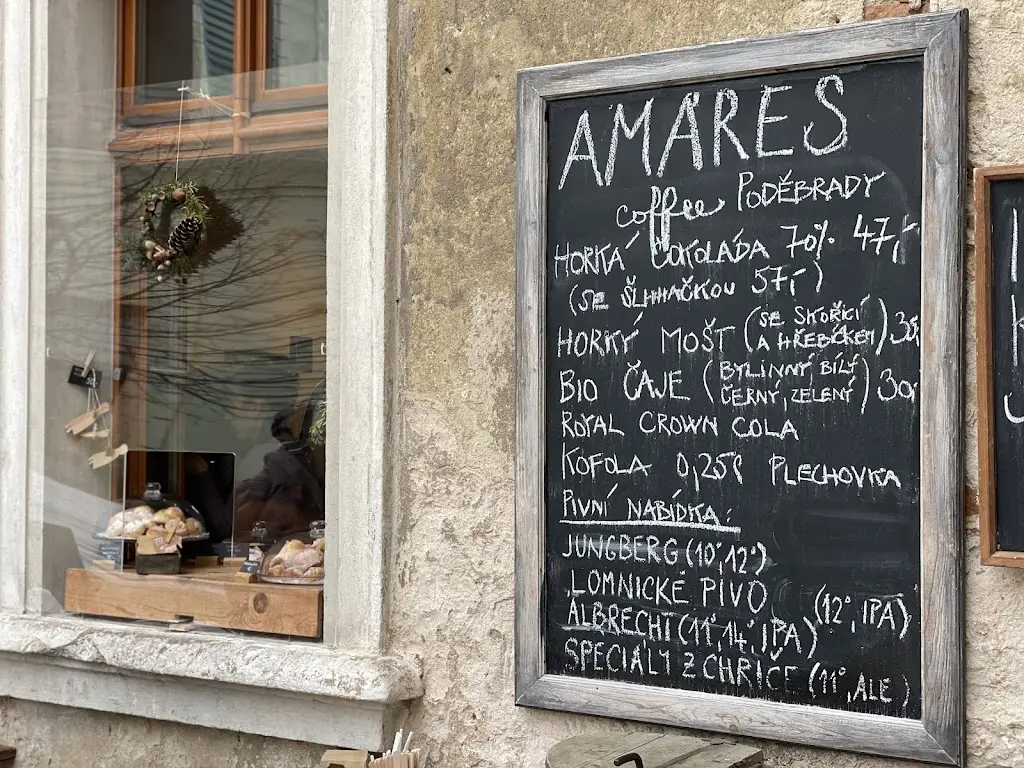 AMARES
coffee PODĚBRADY
HORKÁ ČOKOLÁDA 70% 47,-
(SE ŠLEHAČKOU 57,-)
HORKÝ MOŠT (SE SKOŘICÍ
A HŘEBÍČKEM)
BIO ČAJE (BYLINNÝ BÍLÝ
ČERNÝ, ZELENÝ) 30,
ROYAL CROWN COLA
KOFOLA 0,25l PLECHOVKA
PIVNÍ NABÍDKA:
JUNGBERG (10°,12°)
LOMNICKÉ PIVO (12°, IPA)
ALBRECHT (11°,14°, IPA)
SPECIÁLY Z CHŘÍČE (11°, ALE)